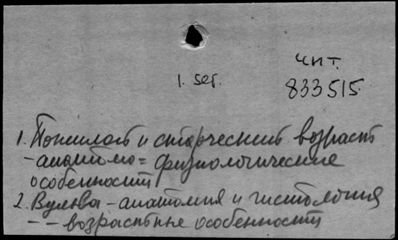 чит.
1. ser.
833515
1. Пожилой и старческий возраст
- анатомо = физиологические
особенности
2. Вульва - анатомия и гистология
- - возрастные особенности